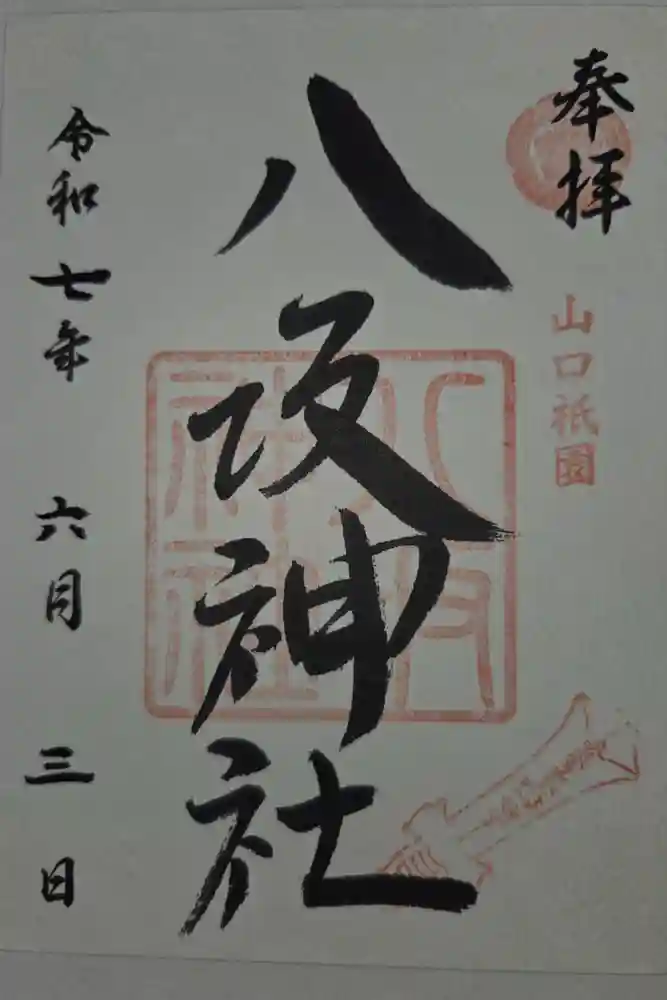 奉拝
山口祇園
八坂神社
令和七年 六月 三日